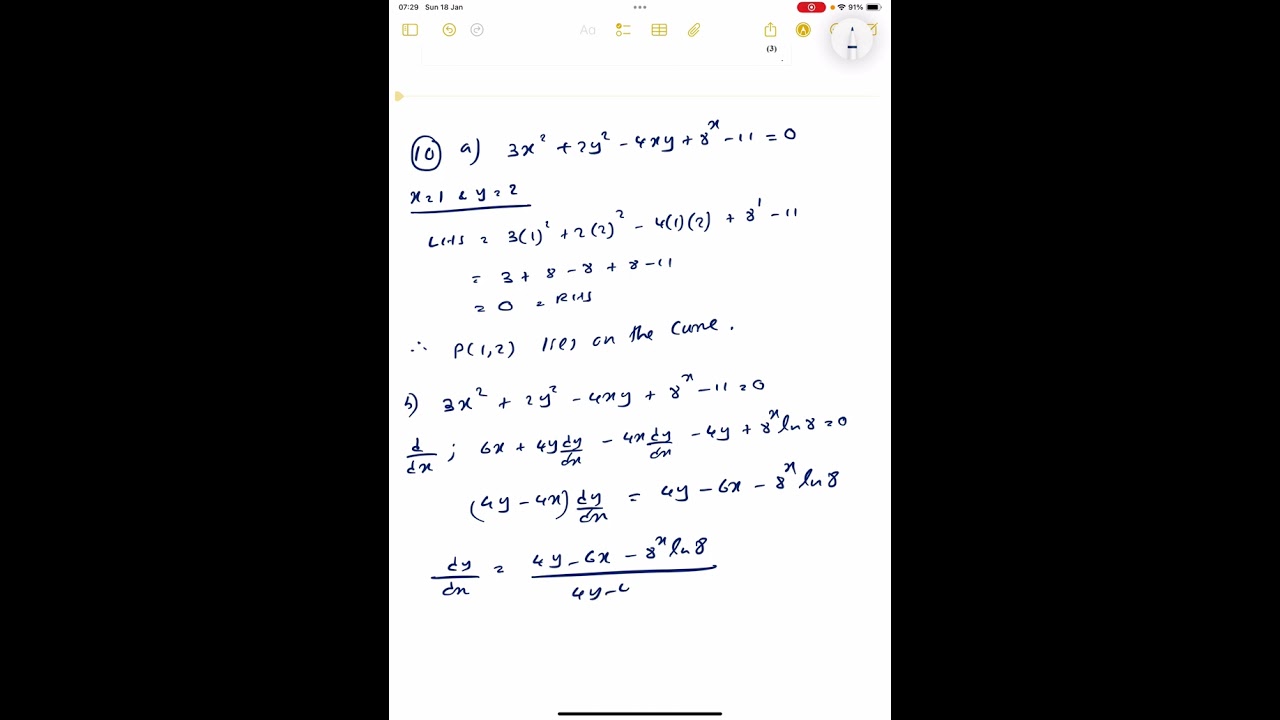 07:29 Sun 18 Jan
91%
Aa
(3)
10 a) 3x² + 2y² - 4xy + 8^x - 11 = 0
x=1 & y=2
LHS = 3(1)² + 2(2)² - 4(1)(2) + 8¹ - 11
= 3 + 8 - 8 + 8 - 11
= 0 = RHS
∴ P(1,2) lies on the curve.
b) 3x² + 2y² - 4xy + 8^x - 11 = 0
d/dx ; 6x + 4y dy/dx - 4x dy/dx - 4y + 8^x ln 8 = 0
(4y - 4x) dy/dx = 4y - 6x - 8^x ln 8
dy/dx = (4y - 6x - 8^x ln 8)/(4y - 4